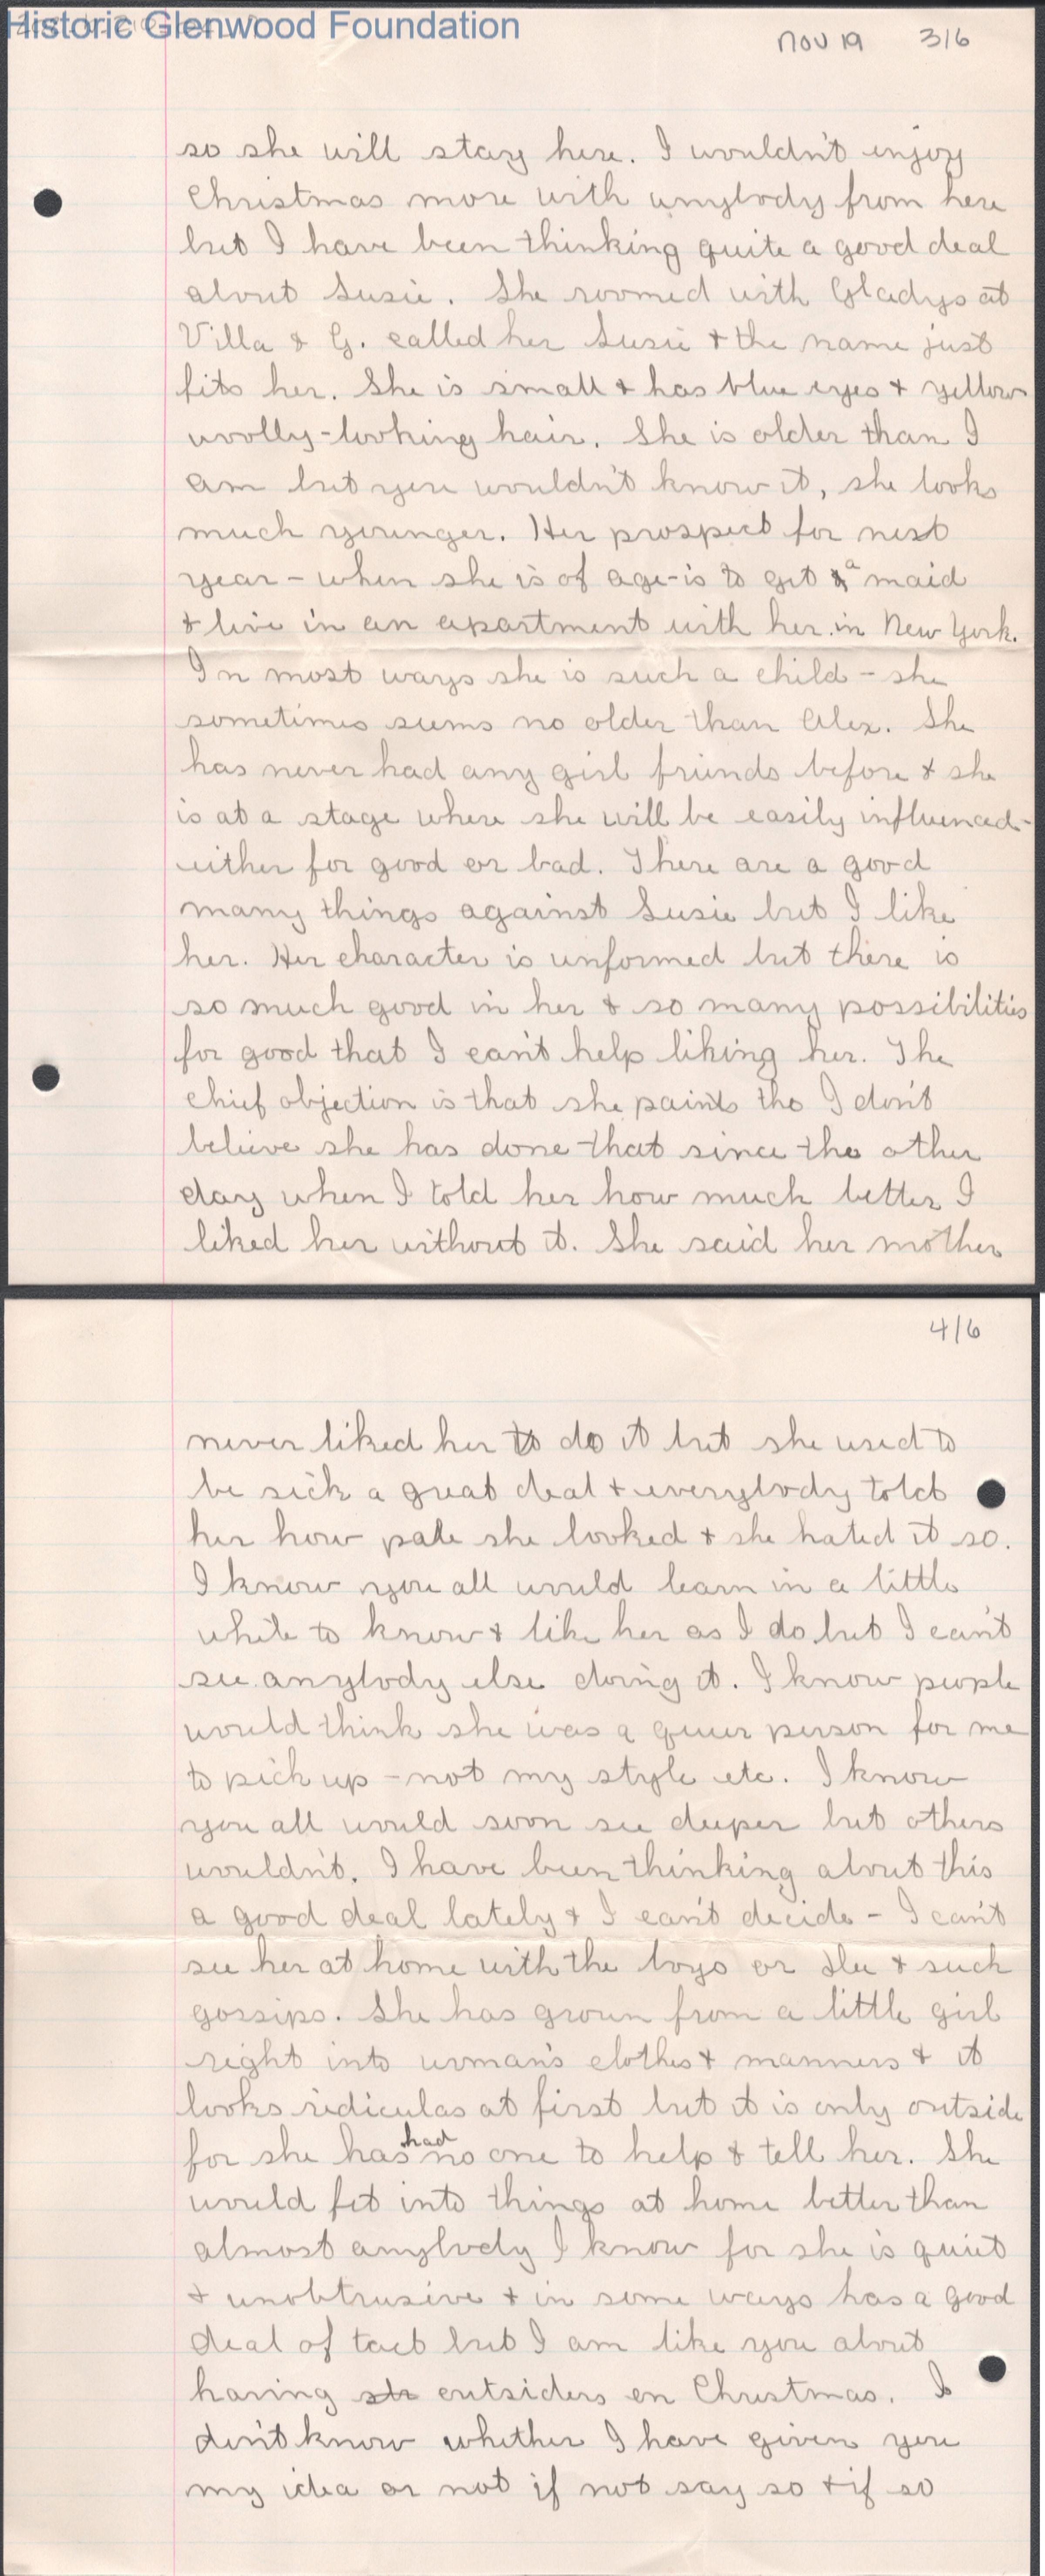 Historic Glenwood Foundation
Nov 19 3/6
so she will stay here. I wouldn't enjoy
Christmas more with anybody from here
but I have been thinking quite a good deal
about Susie. She roomed with Gladys at
Villa & G. called her Susie & the name just
fits her. She is small & has blue eyes & yellow
woolly-looking hair. She is older than I
am but you wouldn't know it, she looks
much younger. Her prospect for next
year - when she is of age - is to get a maid
& live in an apartment with her in New York.
In most ways she is such a child - she
sometimes seems no older than Alex. She
has never had any girl friends before & she
is at a stage where she will be easily influenced -
either for good or bad. There are a good
many things against Susie but I like
her. Her character is unformed but there is
so much good in her & so many possibilities
for good that I can't help liking her. The
chief objection is that she paints tho I don't
believe she has done that since the other
day when I told her how much better I
liked her without it. She said her mother
4/6
never liked her to do it but she used to
be sick a great deal & everybody told
her how pale she looked & she hated it so.
I know you all would learn in a little
while to know & like her as I do but I can't
see anybody else doing it. I know people
would think she was a queer person for me
to pick up - not my style etc. I know
you all would soon see deeper but others
wouldn't. I have been thinking about this
a good deal lately & I can't decide - I can't
see her at home with the boys or & such
gossips. She has grown from a little girl
right into woman's clothes & manners & it
looks ridiculas at first but it is only outside
for she has had no one to help & tell her. She
would fit into things at home better than
almost anybody I know for she is quiet
& unobtrusive & in some ways has a good
deal of tact but I am like you about
having outsiders on Christmas. I
don't know whether I have given you
my idea or not if not say so & if so